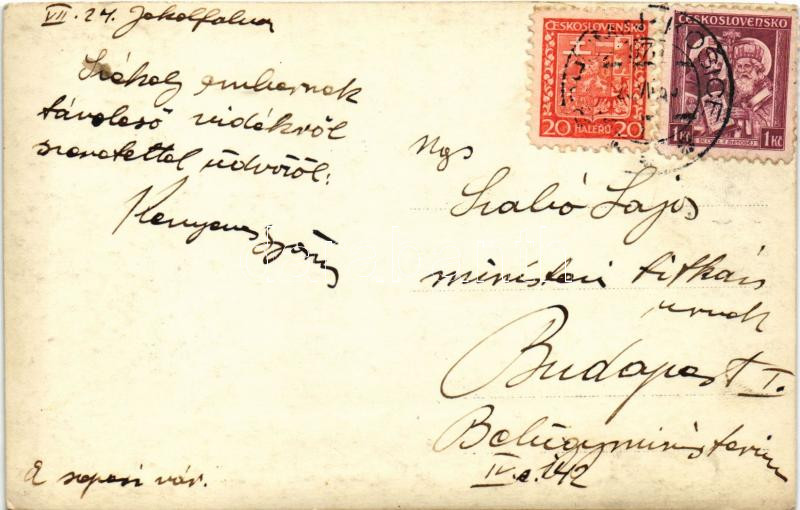 VII. 24. Jekelfalva
Székely embernek
távoleső vidékről
szeretettel üdvözöl:
ČESKOSLOVENSKO
20 HALÉŘŮ 20
ČESKOSLOVENSKO
1 Kč 1 Kč
KOŠICE
Ngs
Szabó Lajos
miniszteri titkár
úrnak
Budapest I.
Belügyminisztérium
IV. e. 142
A vár.